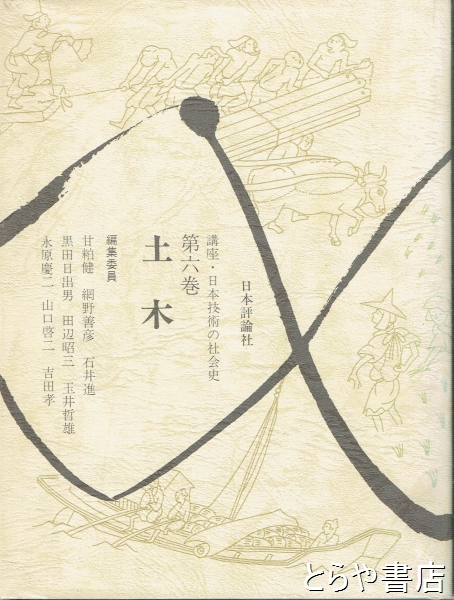 日本評論社
講座・日本技術の社会史
第六巻
土木
編集委員
甘粕健 網野善彦 石井進
黒田日出男 田辺昭三 玉井哲雄
永原慶二 山口啓二 吉田孝
とらや書店